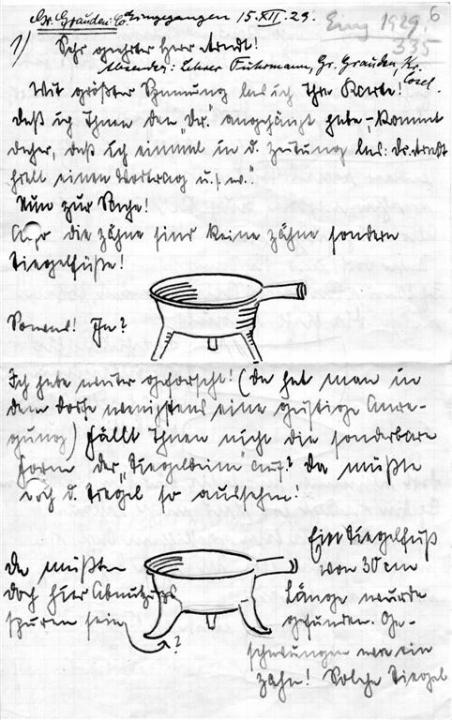 Gr. Grauden O/S. Eingegangen 15. XII. 29.
Eing 1929, 6
335
1) Sehr geehrter Herr Arndt!
Absender: Lehrer Fuhrmann, Gr. Grauden, Kr. Cosel.
Mit größter Spannung las ich Ihre Karte!
Daß ich Ihnen den „Dr." angehängt habe, – kommt
daher, daß ich einmal in d. Zeitung las: Dr. Arndt
hält einen Vortrag u.s.w."
Nun zur Sache!
Also die Zähne sind keine Zähne sondern
Tiegelfüße!
Ja?
Ich habe weiter geforscht! (Da hat man in
dem Dorfe wenigstens eine geistige Anre-
gung) Fällt Ihnen nicht die sonderbare
Form der „Tiegelbeine" auf? Da müßte
doch d. Tiegel so aussehen:
Ein Tiegelfuß
von 30 cm
Länge wurde
gefunden. Ge-
schwungen wie ein
Zahn! Solche Tiegel
Da müßten
doch hier Abnutzungs
spuren sein
?